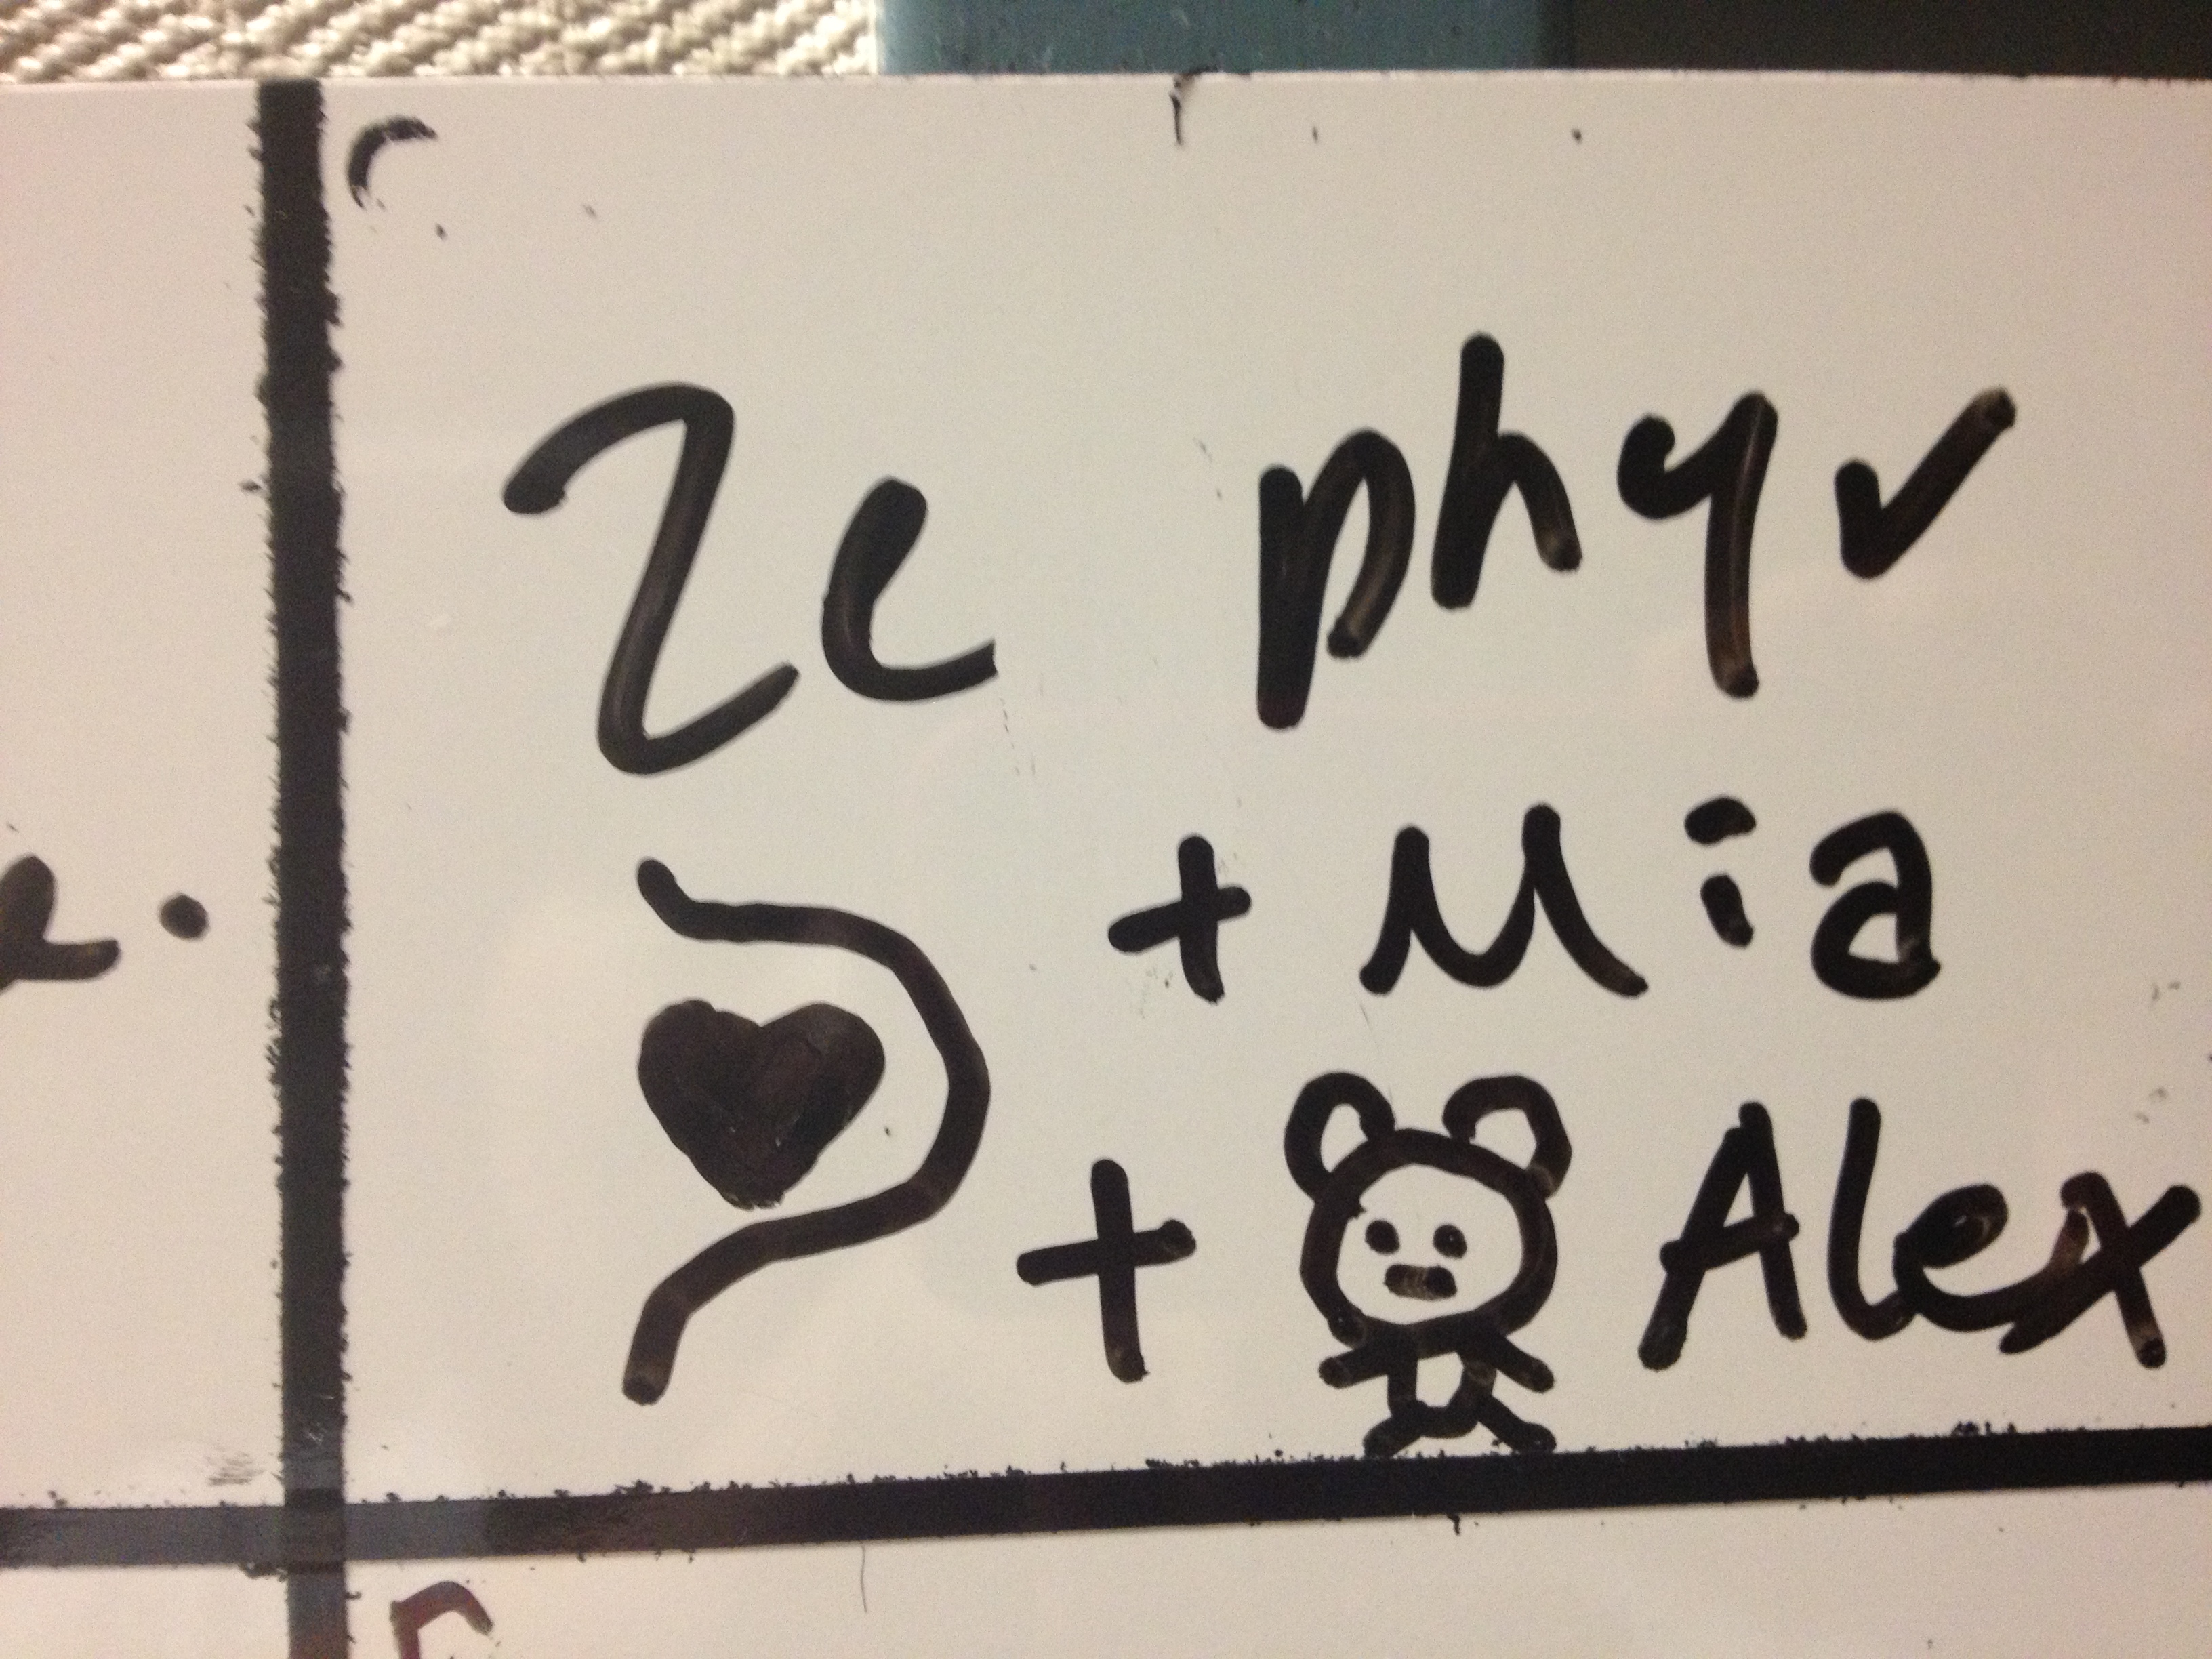 Ze phyr
+ Mia
+ Alex
e.